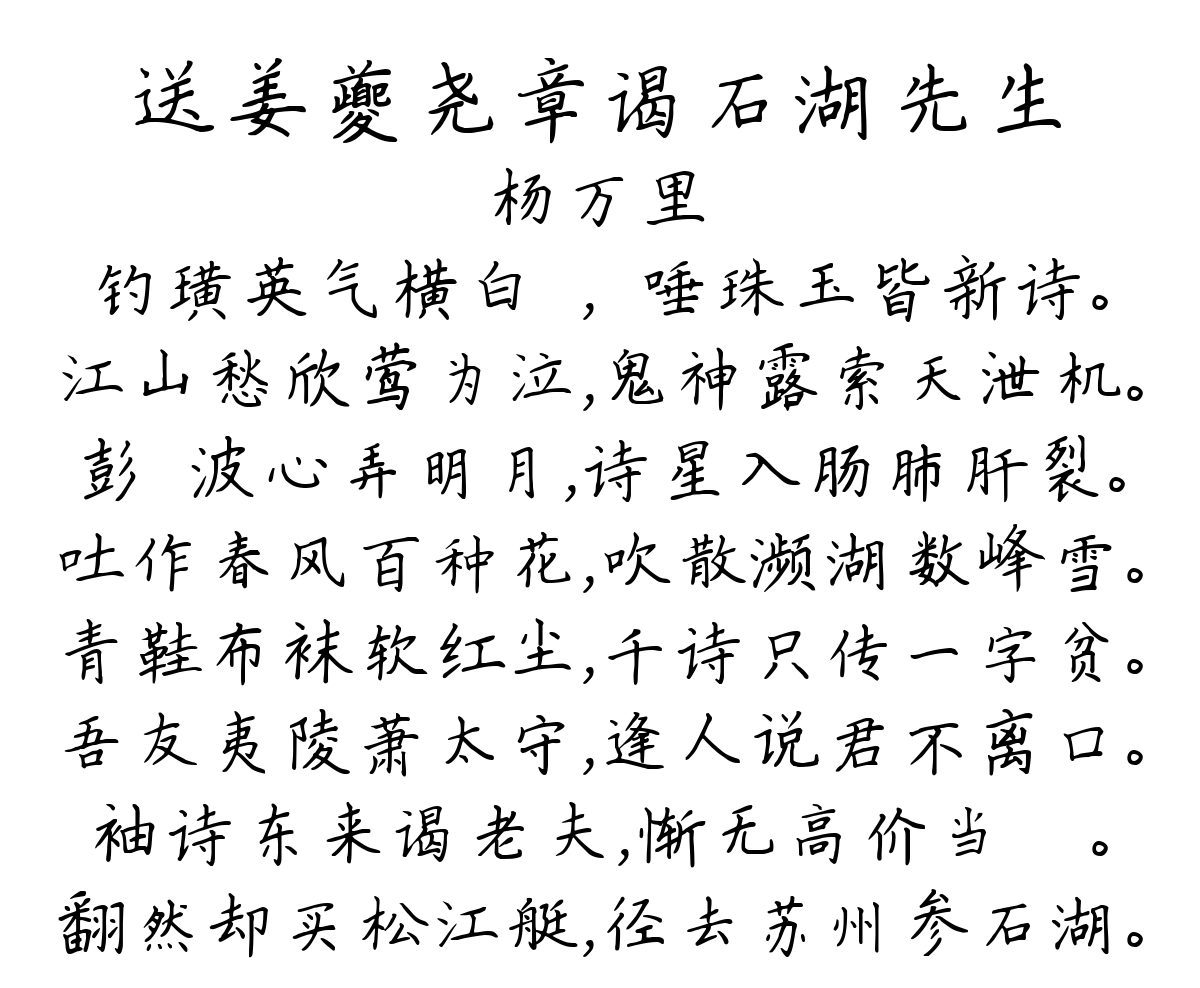 送姜夔尧章谒石湖先生
杨万里
钓璜英气横白 ，唾珠玉皆新诗。
江山愁欣莺为泣,鬼神露索天泄机。
彭 波心弄明月,诗星入肠肺肝裂。
吐作春风百种花,吹散濒湖数峰雪。
青鞋布袜软红尘,千诗只传一字贫。
吾友夷陵萧太守,逢人说君不离口。
袖诗东来谒老夫,惭无高价当 。
翻然却买松江艇,径去苏州参石湖。